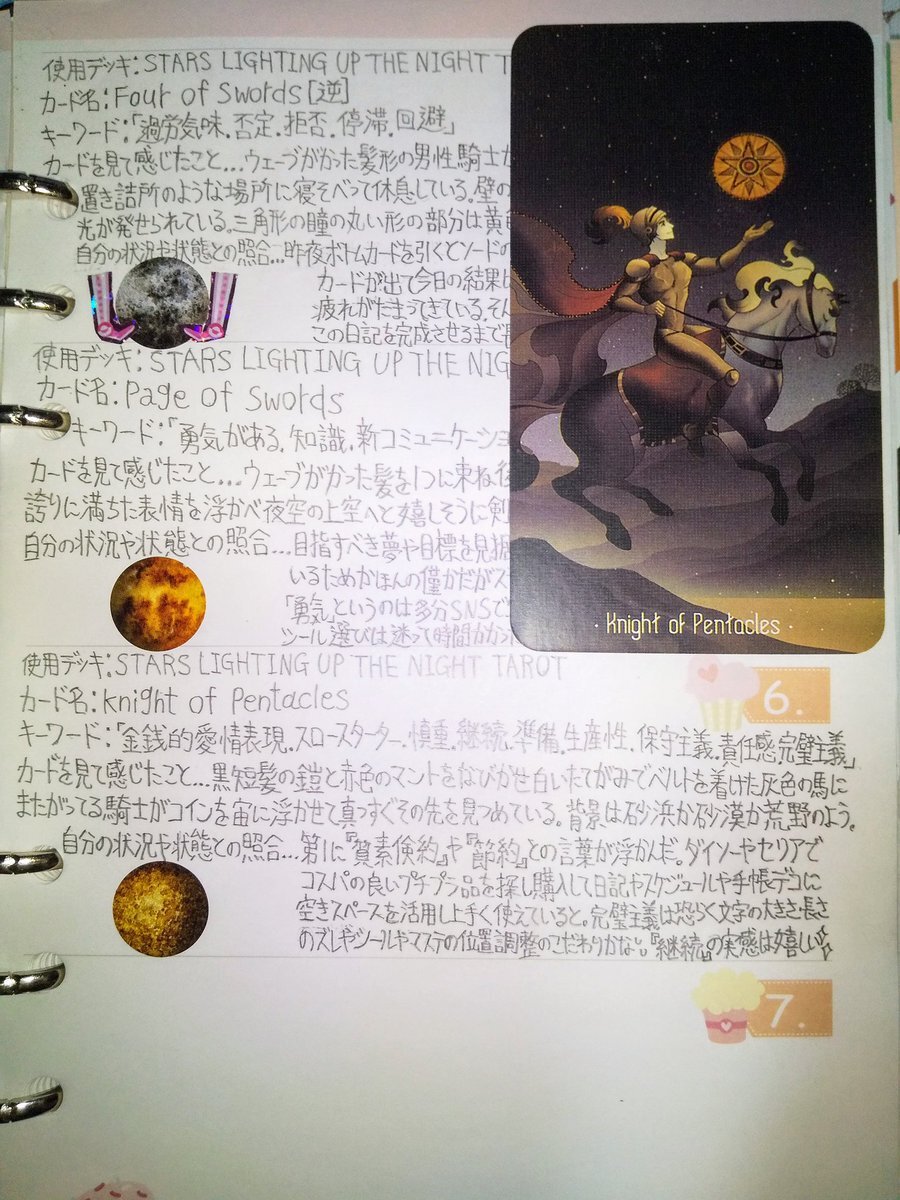 使用デッキ:STARS LIGHTING UP THE NIGHT T
カード名:Four of Swords[逆]
キーワード:「過労気味.否定.拒否.停滞.回避」
カードを見て感じたこと...ウェーブがかった髪形の男性騎士が
置き詰所のような場所に寝そべって休息している。壁の
光が発せられている。三角形の瞳の丸い形の部分は黄色
自分の状況や状態との照合...昨夜ボトムカードを引くとソードの
カードが出て今日の結果も
疲れがたまってきている。そん
この日記を完成させるまで
使用デッキ:STARS LIGHTING UP THE NIG
カード名:Page of Swords
キーワード:「勇気がある.知識.新コミュニケーショ
カードを見て感じたこと...ウェーブがかった髪を1つに束ね後
誇りに満ちた表情を浮かべ夜空の上空へと嬉しそうに剣
自分の状況や状態との照合...目指すべき夢や目標を見据
いるためかほんの僅かだがス
「勇気」というのは多分SNSで
シール選びは迷って時間かかった
Knight of Pentacles
使用デッキ:STARS LIGHTING UP THE NIGHT TAROT
カード名:Knight of Pentacles
6.
キーワード:「金銭的愛情表現.スロースターター.慎重.継続.準備.生産性.保守主義.責任感.完璧主義」
カードを見て感じたこと...黒短髪の鎧と赤色のマントをなびかせ白いたてがみでベルトを着けた灰色の馬に
またがってる騎士がコインを宙に浮かせて真っすぐその先を見つめている。背景は砂浜か砂漠か荒野のよう。
自分の状況や状態との照合...第1に『質素倹約』や『節約』との言葉が浮かんだ。ダイソーやセリアで
コスパの良いプチプラ品を探し購入して日記やスケジュールや手帳デコに
空きスペースを活用し上手く使えていると。完璧主義は恐らく文字の大きさ・長さ
のズレやシールやマステの位置調整のこだわりかな。『継続』の実感は嬉しい
7.